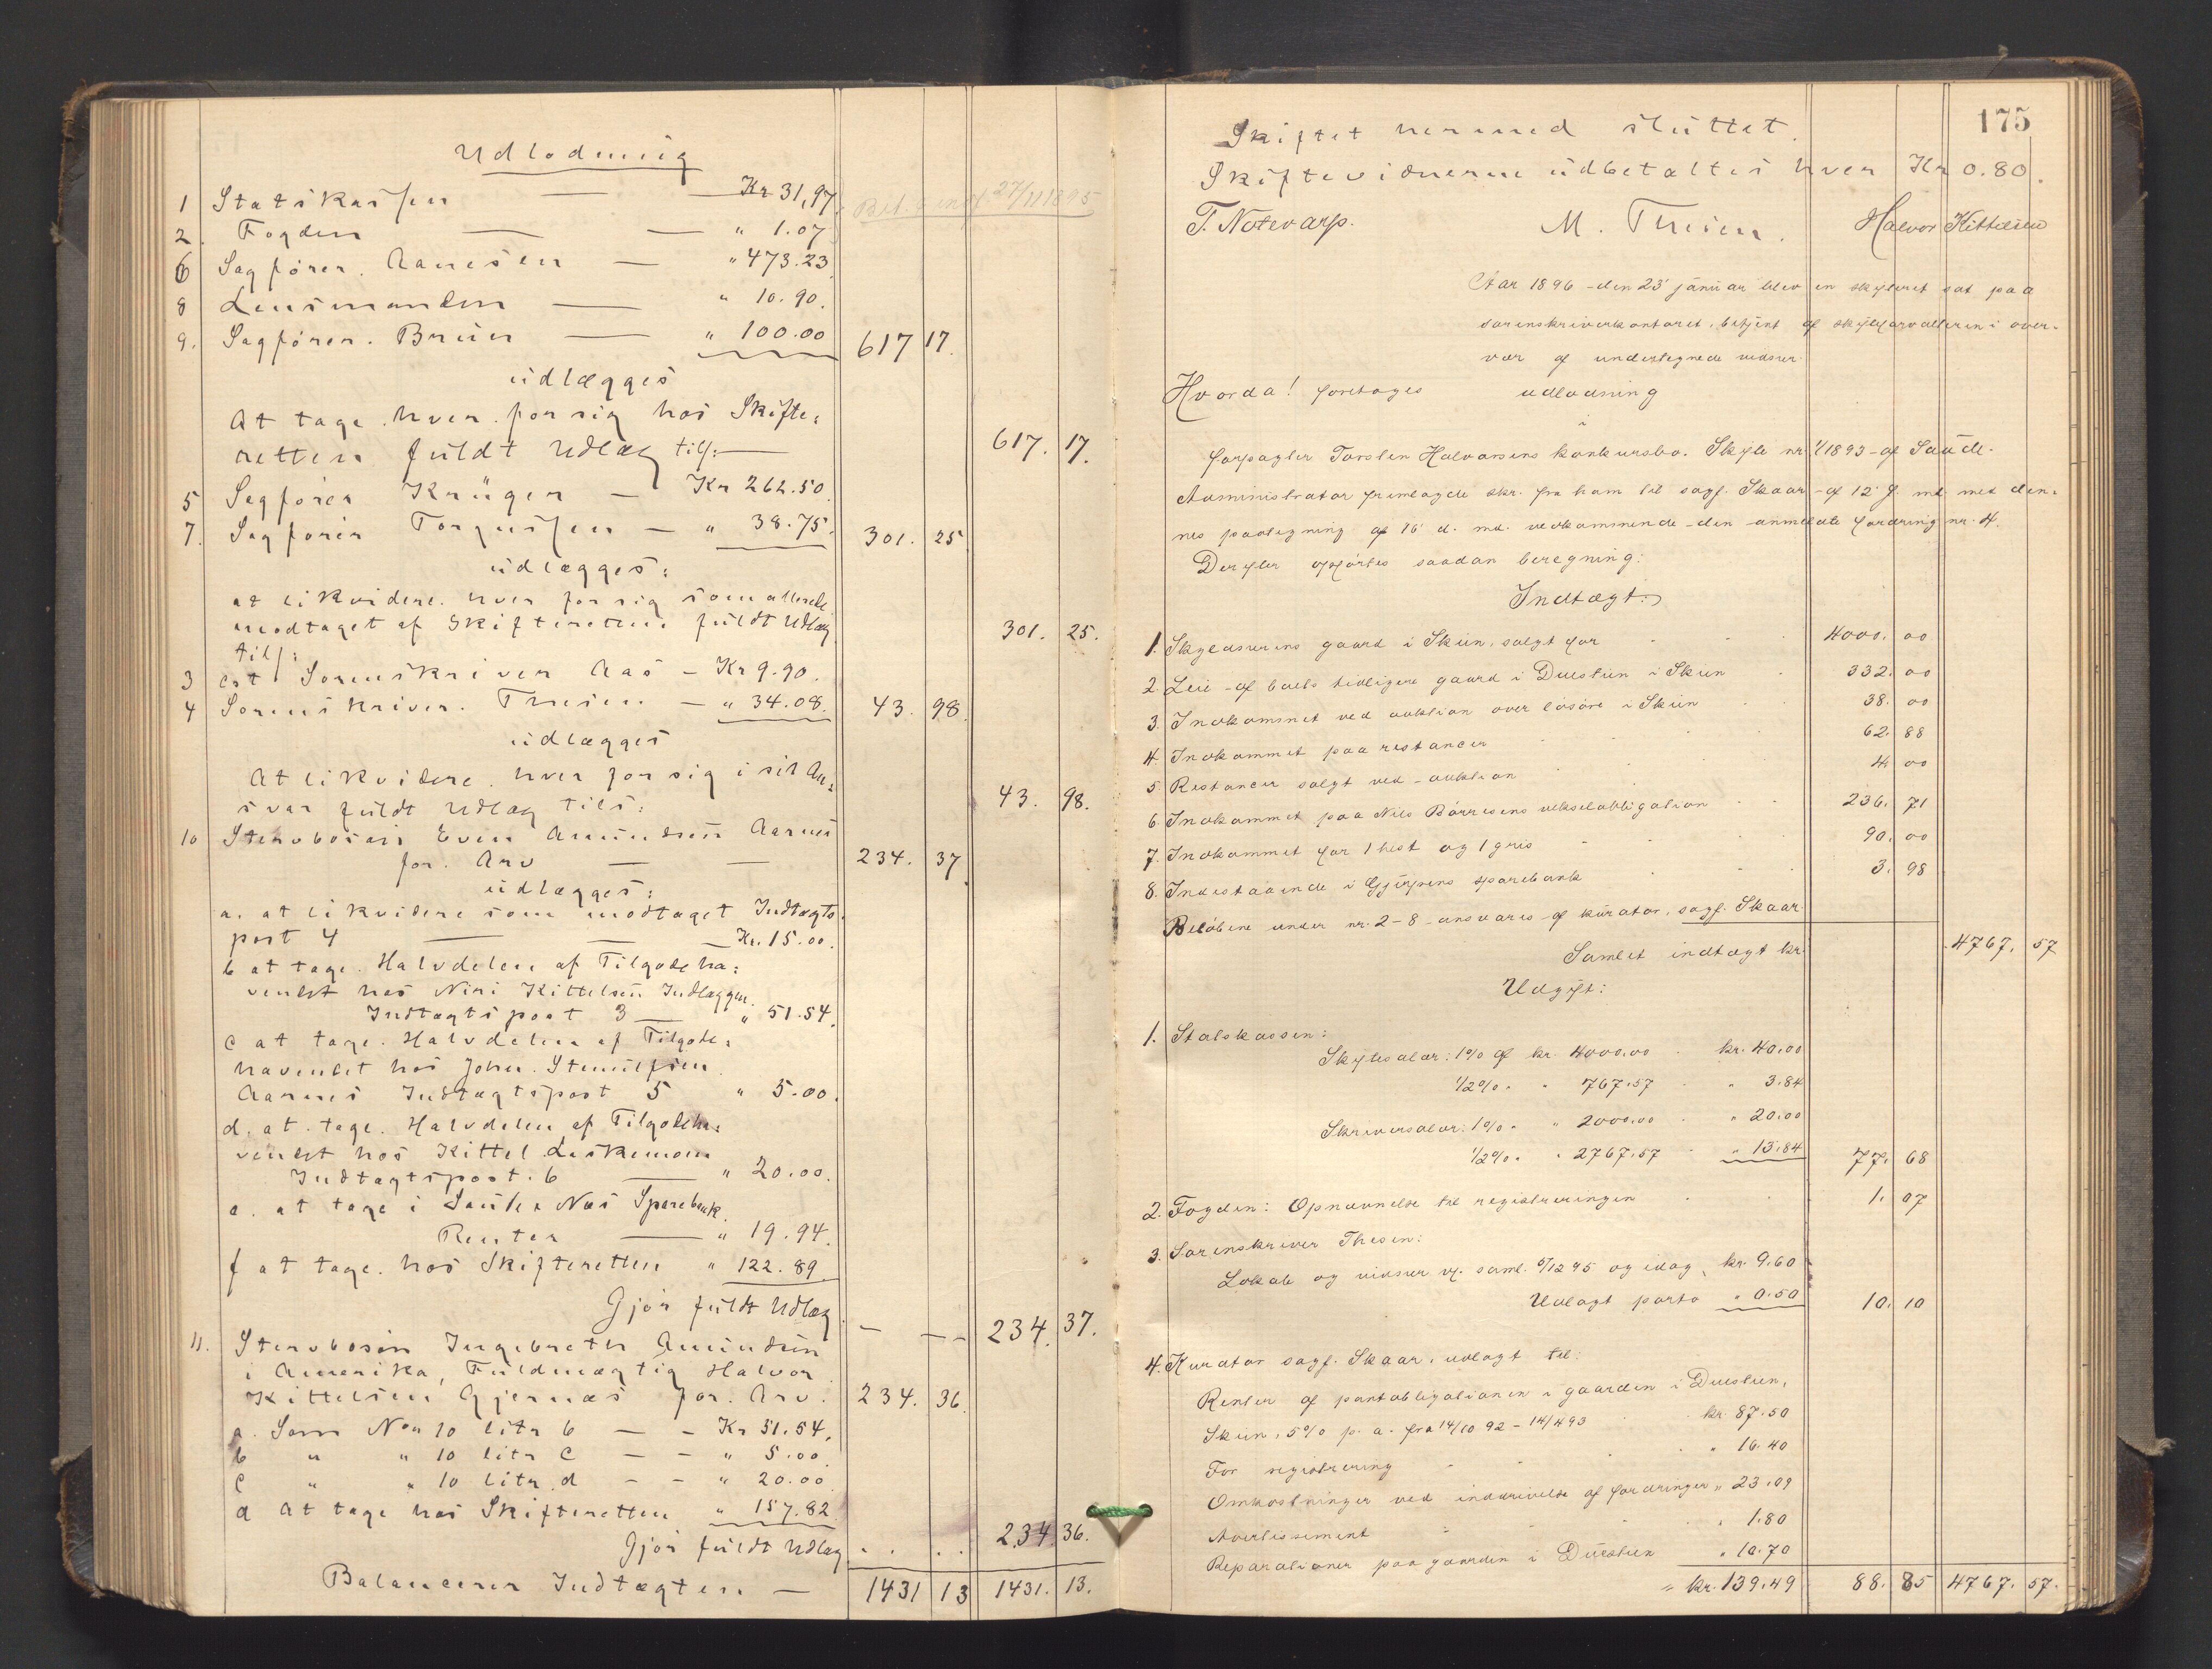 Udlodning
1 Statskassen — Kr 31,97. Bet. 27/11 1895
2. Fogden — — " 1.07
6 Sagfører. Aanesen — " 473.23
8 Lensmanden — " 10.90.
9. Sagfører. Bruun — " 100.00 617 17.
udlægges
At tage hver for sig hos Skifte=
retten fuldt Udlæg til: — 617. 17.
5 Sagfører Krüger — Kr 262.50
7. Sagfører Torgussen — " 38.75. 301. 25
udlægges:
at likvidere hver for sig som allerede
modtaget af Skifteretten fuldt Udlæg 301. 25.
til:
3 cst Sorenskriver Aas — Kr 9.90.
4 Sorenskriver. Thesen — " 34.08. 43. 98.
udlægges
At likvidere hver for sig i sit An=
svar fuldt Udlæg til: 43. 98.
10 Stervbosøn Even Amundsen Aarnes
for. Arv — — 234. 37.
udlægges:
a. at likvidere som modtaget Indtægts
post 4 — — Kr. 15.00.
b at tage Halvdelen af Tilgodeha=
vendet hos Kittelsen Indlæggen.
Indtægtspost 3 — " 51.54.
c at tage. Halvdelen af Tilgode=
havendet hos John
Aarnes Indtægtspost 5 " 5.00.
d. at. tage. Halvdelen af Tilgodeha=
vendet hos Kittel
Indtægtspost. 6 — " 20.00.
e. at tage i Saude & Nes Sparebank.
Renter — " 19.94.
f at tage. hos Skifteretten " 122.89.
Gjør fuldt Udlæg — — 234. 37.
11. Stervbosøn Ingebreth Amundsen
i Amerika, Fuldmægtig Halvor
Kittelsen Gjernæs for. Arv. 234. 36.
a. Som No 10 litr b — — Kr 51.54.
b " " 10 litr c — — " 5.00.
c " " 10 litr. d — — " 20.00
d At tage hos Skifteretten " 157.82.
Gjør fuldt Udlæg . . . . 234. 36.
Balancerer Indtægten — 1431 13 1431. 13.
175
Skiftet hermed sluttet.
Skiftevidnerne udbetaltes hver Kr 0.80.
T. Notevarp. M. Thesen. Halvor Kittilsen
Aar 1896 den 23 januar blev en skifteret sat paa
sorenskriverkontoret, betjent af skifteforvalteren i over=
vær af undertegnede vidner.
Hvorda! foretages udlodning
i
forpagter Torsten Halvorsens konkursbo. Skifte nr. 1/1893 af Saude.
Administrator fremlagde skr. fra ham til sagf. Skaar af 12 f. md. med den=
nes paategning af 16 d. md. vedkommende den anmeldte fordring nr. 4.
Derefter opførtes saadan beregning:
Indtægt:
1. Skyldnerens gaard i Skien, solgt for 4000. 00
2. Leie af boets tidligere gaard i Duestien i Skien 332. 00
3. Indkommet ved auktion over løsøre i Skien 38. 00
4. Indkommet paa restancer 62. 88
5. Restancer solgt ved auktion 4. 00
6. Indkommet paa Nils Børresens vekselobligation 236. 71
7. Indkommet for 1 hest og 1 gris 90. 00
8. Indestaaende i Gjerpens sparebank 3. 98
Beløbene under nr. 2-8 ansvares af kurator, sagf. Skaar.
Samlet indtægt kr. 4767. 57
Udgift:
1. Statskassen:
Skiftesalær: 1% af kr. 4000.00 kr. 40.00
1/2% " " 767.57 " 3.84
Skriversalær: 1% " " 2000.00 " 20.00
1/2% " " 2767.57 " 13.84 77. 68
2. Fogden: Opnævnelse til registreringen 1. 07
3. Sorenskriver Thesen:
Lokale og vidner v. saml. 6/12 95 og idag, kr. 9.60
Udlagt porto " 0.50 10. 10
4. Kurator sagf. Skaar, udlagt til:
Renter af pantobligationen i gaarden i Duestien,
Skien, 5% p. a. fra 14/10 92 - 14/4 93 kr. 87.50
For registrering " 16.40
Omkostninger ved inddrivelse af fordringer " 23.09
Avertissement " 1.80
Reparationer paa gaarden i Duestien " 10.70
" kr. 139.49 88. 85 4767. 57.